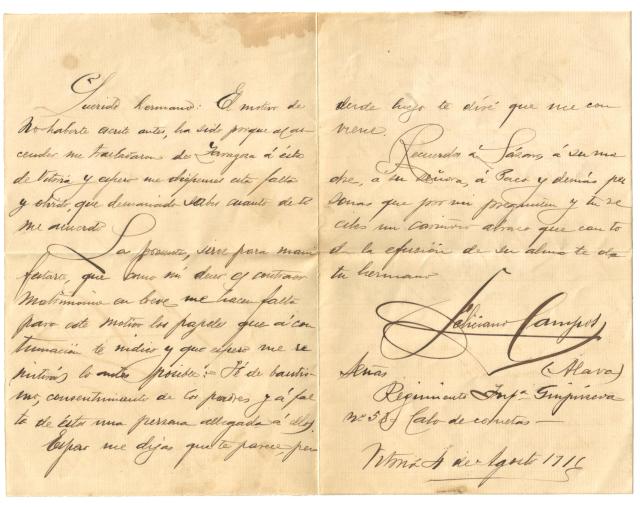 Querido hermano: El motivo de
no haberte escrito antes, ha sido porque al as
cender me trasladaron de Zaragoza á ésta
de Vitoria y espero me dispenses esta falta
y olvido, que demasiado sabes cuanto de ti
me acuerdo
La presente, sirve para mani
festarte, que como mi deseo es contraer
matrimonio en breve me hacen falta
para este motivo los papeles que á con
tinuación te indico y que espero me re
mitirás lo antes posible: Fé de bautis
mo, consentimiento de los padres y á fal
ta de éstos una persona allegada á ellos
Espero me digas que te parece pero
desde luego te diré que me con
viene.
Recuerdos á á su ma
dre, á su señora, á Paco y demás per
sonas que por mi pregunten y tu re
cibe un cariñoso abrazo que con to
da la efusión de su alma te da
tu hermano
Feliciano Campos
Señas (Alava)
Regimiento Infª Guipúzcoa
nº 53 Cabo de cornetas
Vitoria 4 de Agosto